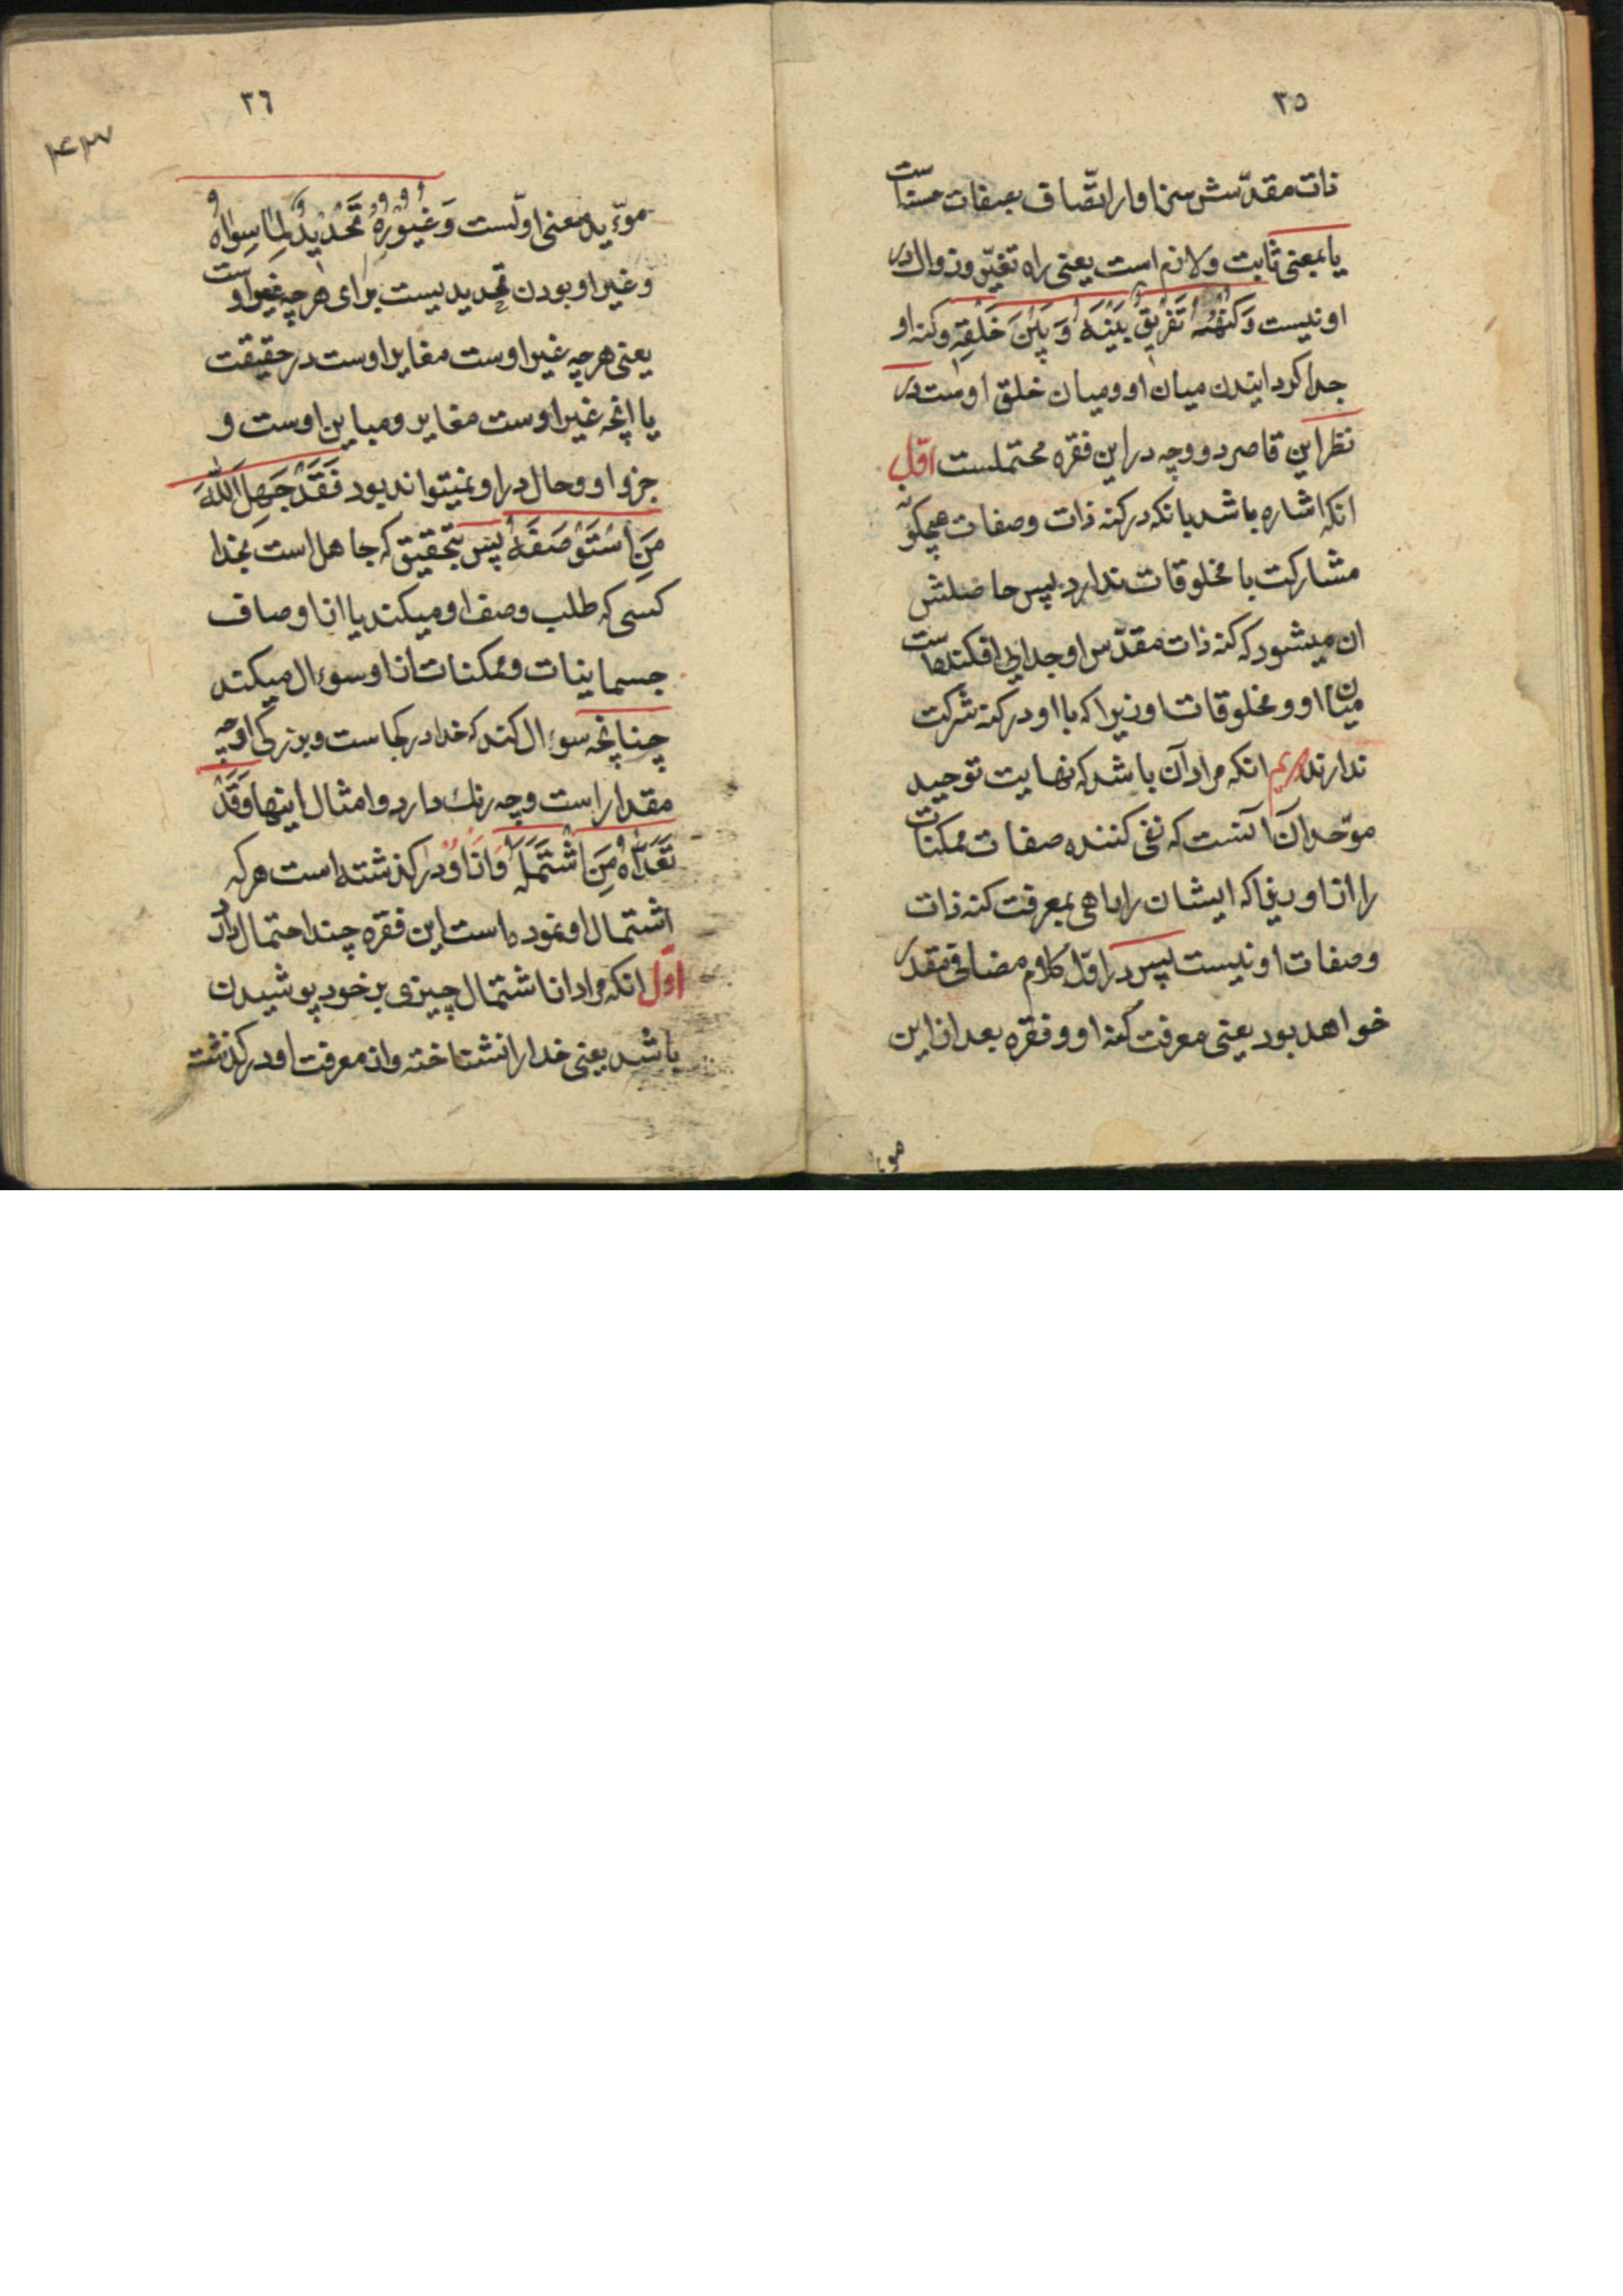 ٣٥
ذات مقدّسش سزاوار اتّصاف بصفات حسنه است
یا بمعنی ثابت و لازم است یعنی راه تغیّر و زوال در
او نیست وَكُنْهُهُ تَفْرِيقٌ بَيْنَهُ وَ بَيْنَ خَلْقِهِ و کنه او
جدا کردانیدن میان او و میان خلق اوست در
نظر این قاصر دو وجه در این فقره محتملست اوّل
انکه اشاره باشد بانکه در کنه ذات و صفات هیچکونه
مشارکت با مخلوقات ندارد پس حاصلش
ان میشود که کنه ذات مقدّس او جدایی افکنده است
میان او و مخلوقات او زیرا که با او در کنه شرکت
ندارند دویم انکه مراد آن باشد که نهایت توحید
موّحدان آنست که نفی کننده صفات ممکنات
را از او زیرا که ایشان را راهی بمعرفت کنه ذات
و صفات او نیست پس در اوّل کلام مضافی مقدر
خواهد بود یعنی معرفت کنه او و فقره بعد از این
موید
٣٦
موءیّد معنی اوّلست وَغُيُورُهُ تَحْدِيدٌ لِمَا سِوَاهُ
و غیر او بودن تحدیدیست برای هر چه غیر اوست
یعنی هر چه غیر اوست مغایر اوست در حقیقت
یا انچه غیر اوست مغایر و مباین اوست و
جزو او و حال در او نمیتواند بود فَقَدْ جَهِلَ اللّٰهَ
مَنِ اسْتَوْصَفَهُ پس بتحقیق که جاهل است بخدا
کسی که طلب وصف او میکند یا از اوصاف
جسمانیات و ممکنات از او سوءال میکند
چنانچه سوءال کند که خدا در کجاست و بزرکی او چه
مقدار است و چه رنك دارد و امثال اینها وَقَدْ
تَعَدَّاهُ مَنِ اشْتَمَلَهُ و از او در کذشته است هر که
اشتمال او نموده است این فقره چند احتمال دارد
اوّل انکه مراد از اشتمال چیزی بر خود پوشیدن
باشد یعنی خدا را نشناخته و از معرفت او در کذشته